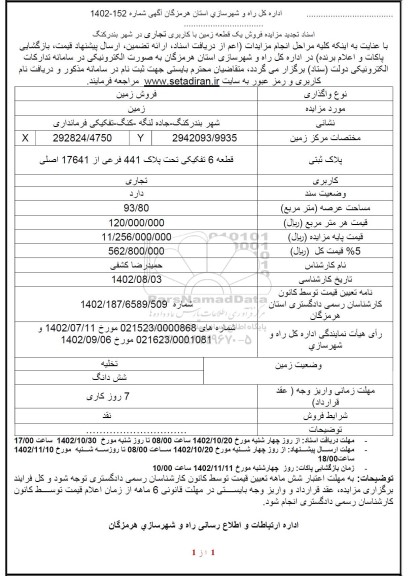 اداره کل راه و شهرسازي استان هرمزگان آگهی شماره 152-1402
اسناد تجدید مزایده فروش یک قطعه زمین با کاربری تجاری در شهر بندرکنگ
با عنایت به اینکه کلیه مراحل انجام مزایدات (اعم از دریافت اسناد، ارائه تضمین، ارسال پیشنهاد قیمت، بازگشایی
پاکات و اعلام برنده) در اداره کل راه و شهرسازی استان هرمزگان به صورت الکترونیکی در سامانه تدارکات
الکترونیکی دولت (ستاد) برگزار می گردد، متقاضیان محترم بایستی جهت ثبت نام در سامانه مذکور و دریافت نام
کاربری و رمز عبور به سایت www.setadiran.ir مراجعه فرمایند.
نوع واگذاری فروش زمین
مورد مزایده زمین
نشانی شهر بندرکنگ-جاده لنگه -کنگ-تفکیکی فرمانداری
مختصات مرکز زمین 2942093/9935 Y 292824/4750 X
پلاک ثبتی قطعه 6 تفکیکی تحت پلاک 441 فرعی از 17641 اصلی
کاربری تجاری
وضعیت سند دارد
مساحت عرصه (متر مربع) 93/80
قیمت هر متر مربع (ریال) 120/000/000
قیمت پایه مزایده (ریال) 11/256/000/000
5% قیمت کل (ریال) 562/800/000
نام کارشناس حمیدرضا کشفی
تاریخ کارشناسی 1402/08/03
نامه تعیین قیمت توسط کانون
کارشناسان رسمی دادگستری استان
هرمزگان
شماره 1402/187/6589/509
رأی هیأت نمایندگی اداره کل راه و
شهرسازي
شماره های 021523/0000868 مورخ 1402/07/11 و
021623/0001081 مورخ 1402/09/06
وضعیت زمین تخلیه
شش دانگ
مهلت زمانی واریز وجه ( عقد
قرارداد)
7 روز کاری
شرایط فروش نقد
توضیحات
- مهلت دریافت اسناد: از روز چهار شنبه مورخ 1402/10/20 ساعت 08/00 تا روز شنبه مورخ 1402/10/30 ساعت 17/00
- مهلت ارسال پیشنهاد: از روز چهار شنبه مورخ 1402/10/20 ساعت 08/00 تا روز سه شنبه مورخ 1402/11/10
ساعت 18/00
- زمان بازگشایی پاکات: روز چهارشنبه مورخ 1402/11/11 ساعت 10/00
توضیحات: به مهلت اعتبار شش ماهه تعیین قیمت توسط کانون کارشناسان رسمی دادگستری توجه شود و کل فرایند
برگزاری مزایده، عقد قرارداد و واریز وجه بایستی در مهلت قانونی 6 ماهه از زمان اعلام قیمت توسط کانون
کارشناسان رسمی دادگستری انجام شود.
اداره ارتباطات و اطلاع رسانی راه و شهرسازي هرمزگان
1 از 1